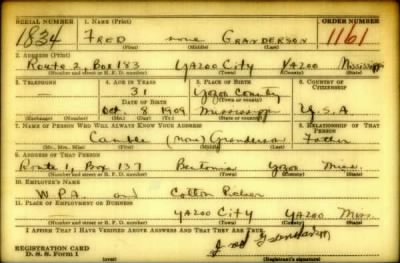 SERIAL NUMBER 1. NAME (Print) ORDER NUMBER
1834 FRED none GRANDERSON 1161
(First) (Middle) (Last)
2. ADDRESS (Print)
Route 2, Box 183 YAZOO CITY YAZOO Mississippi
(Number and street or R. F. D. number) (Town) (County) (State)
3. TELEPHONE 4. AGE IN YEARS 5. PLACE OF BIRTH 6. COUNTRY OF CITIZENSHIP
31 Yazoo County
DATE OF BIRTH (Town or county)
Oct 8 1909 Mississippi U.S.A
(Exchange) (Number) (Mo.) (Day) (Yr.) (State or country)
7. NAME OF PERSON WHO WILL ALWAYS KNOW YOUR ADDRESS 8. RELATIONSHIP OF THAT PERSON
(none) Granderson Father
(Mr., Mrs., Miss) (First) (Middle) (Last)
9. ADDRESS OF THAT PERSON
Route 1, Box 137 Bentonia Yazoo Miss.
(Number and street or R. F. D. number) (Town) (County) (State)
10. EMPLOYER'S NAME
W.P.A. and Cotton
11. PLACE OF EMPLOYMENT OR BUSINESS
YAZOO CITY YAZOO Miss.
(Number and street or R. F. D. number) (Town) (County) (State)
I AFFIRM THAT I HAVE VERIFIED ABOVE ANSWERS AND THAT THEY ARE TRUE.
REGISTRATION CARD
D. S. S. Form 1 (over) (Registrant's signature)